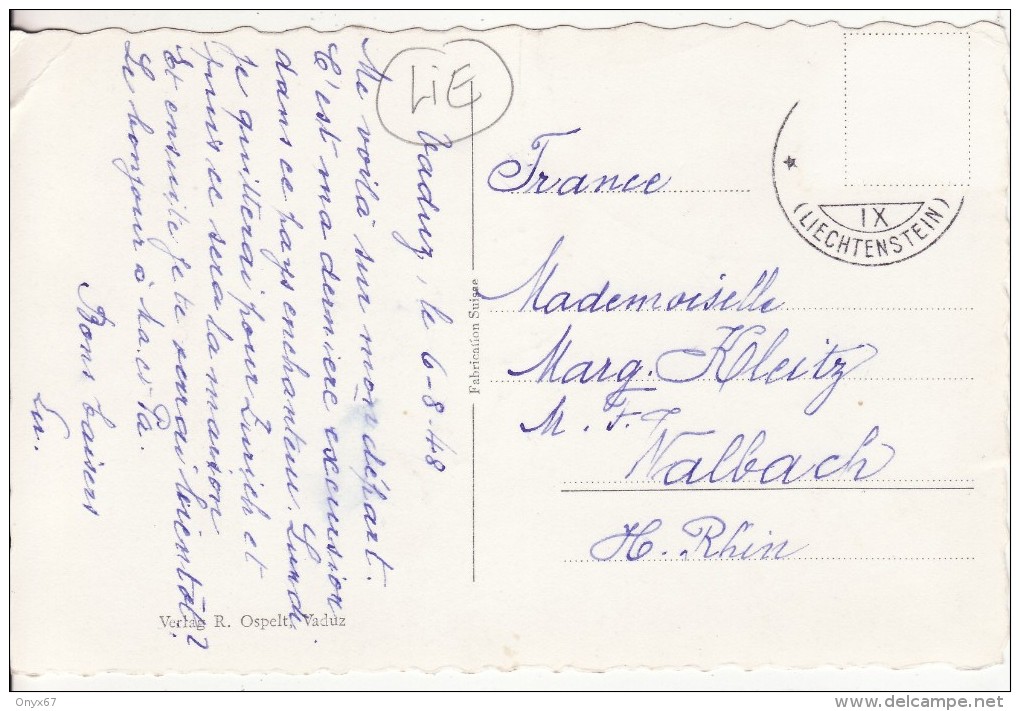 LiE
Vaduz, le 6-8-48
Me voilà sur mon départ.
C'est ma dernière excursion
dans ce pays enchanteur. Lundi
je quitterai pour Zurich et
puis ce sera la maison
Et ensuite je te verrai bientôt?
Le bonjour à ta. et Pa.
Bons baisers
Lu.
Verlag R. Ospelt, Vaduz
Fabrication Suisse
★
IX
(LIECHTENSTEIN)
France
Mademoiselle
Marg. Kleitz
M. F.
Valbach
H. Rhin
Onyx67
www.delcampe.net